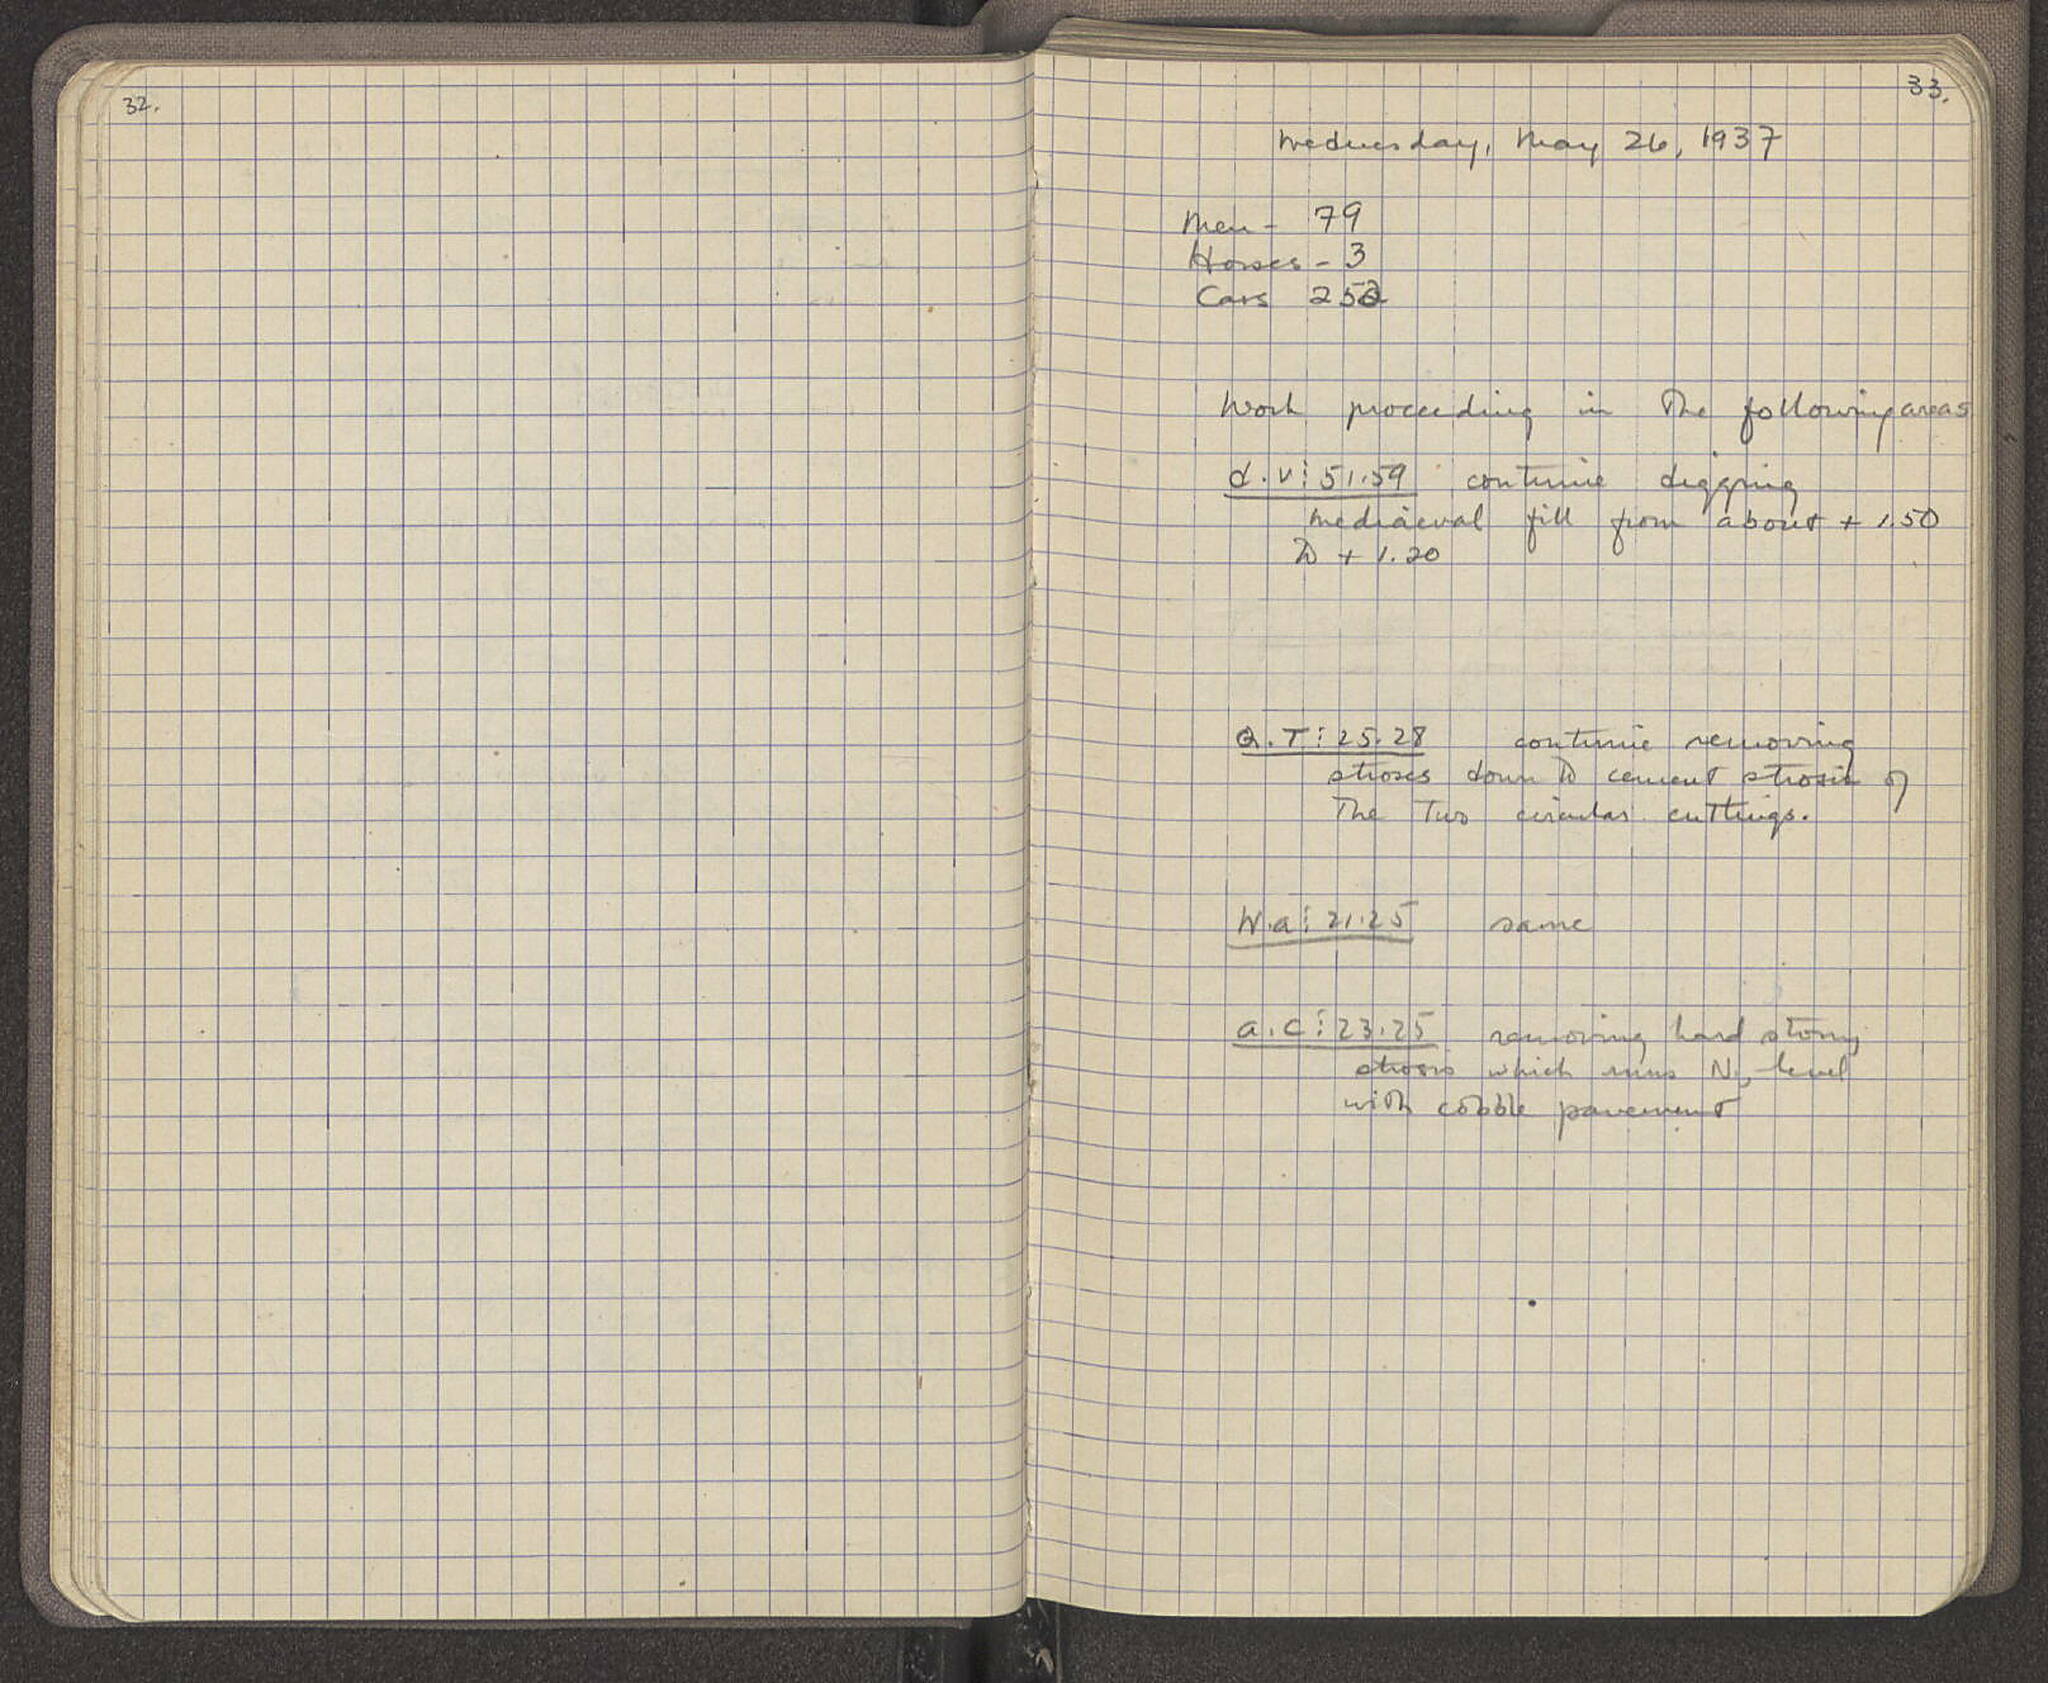 32.
33.
Wednesday, May 26, 1937
Men - 79
Horses - 3
Cars 252
Work proceeding in the following areas
d.v⋮51.59 continue digging
mediaeval fill from about + 1.50
to + 1.20
Q.T⋮25.28 continue removing
stroses down to cement strosis of
the two circular cuttings.
W.a⋮21.25 same
a.c⋮23.25 removing hard stony
strosis which runs N, level
with cobble pavement